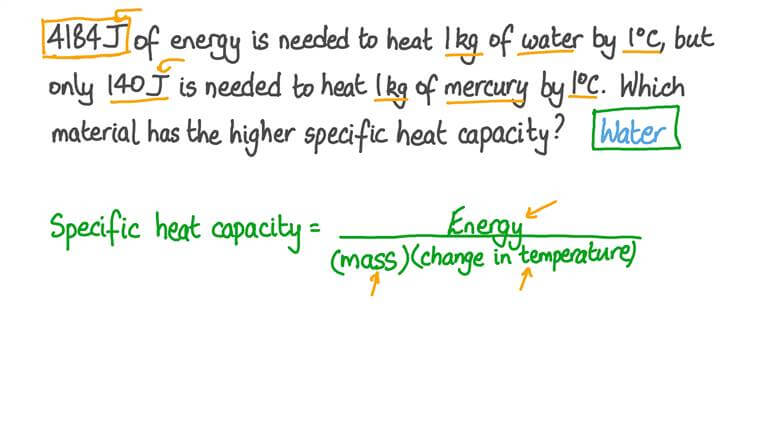 4184J of energy is needed to heat 1kg of water by 1°C, but
only 140J is needed to heat 1kg of mercury by 1°C. Which
material has the higher specific heat capacity? Water
Specific heat capacity = Energy
(mass)(change in temperature)